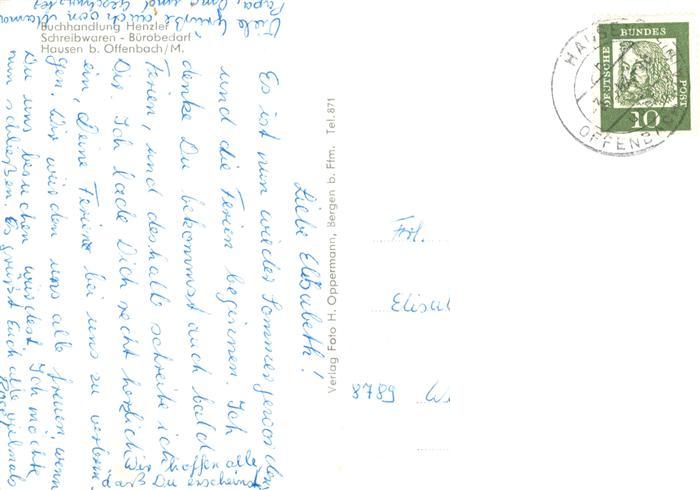 Buchhandlung Henzler
Schreibwaren - Bürobedarf
Hausen b. Offenbach/M.
Liebe Elisabeth!
Es ist nun wieder Sommer geworden
und die Ferien beginnen. Ich
denke Du bekommst auch bald
Ferien, und deshalb schreibe ich
Dir. Ich lade Dich recht herzlich
ein, Deine Ferien bei uns zu verbrin-
gen. Wir würden uns alle freuen, wenn
Du uns besuchen würdest. Ich möchte
nun schließen. Es grüßt Euch alle
Viele Grüße auch von Mama
Papa, Oma und Geschwister
Wir hoffen alle,
daß Du
Verlag Foto H. Oppermann, Bergen b. Ffm. Tel. 871
DEUTSCHE BUNDES POST
10
OFFENBACH
Frl.
8789